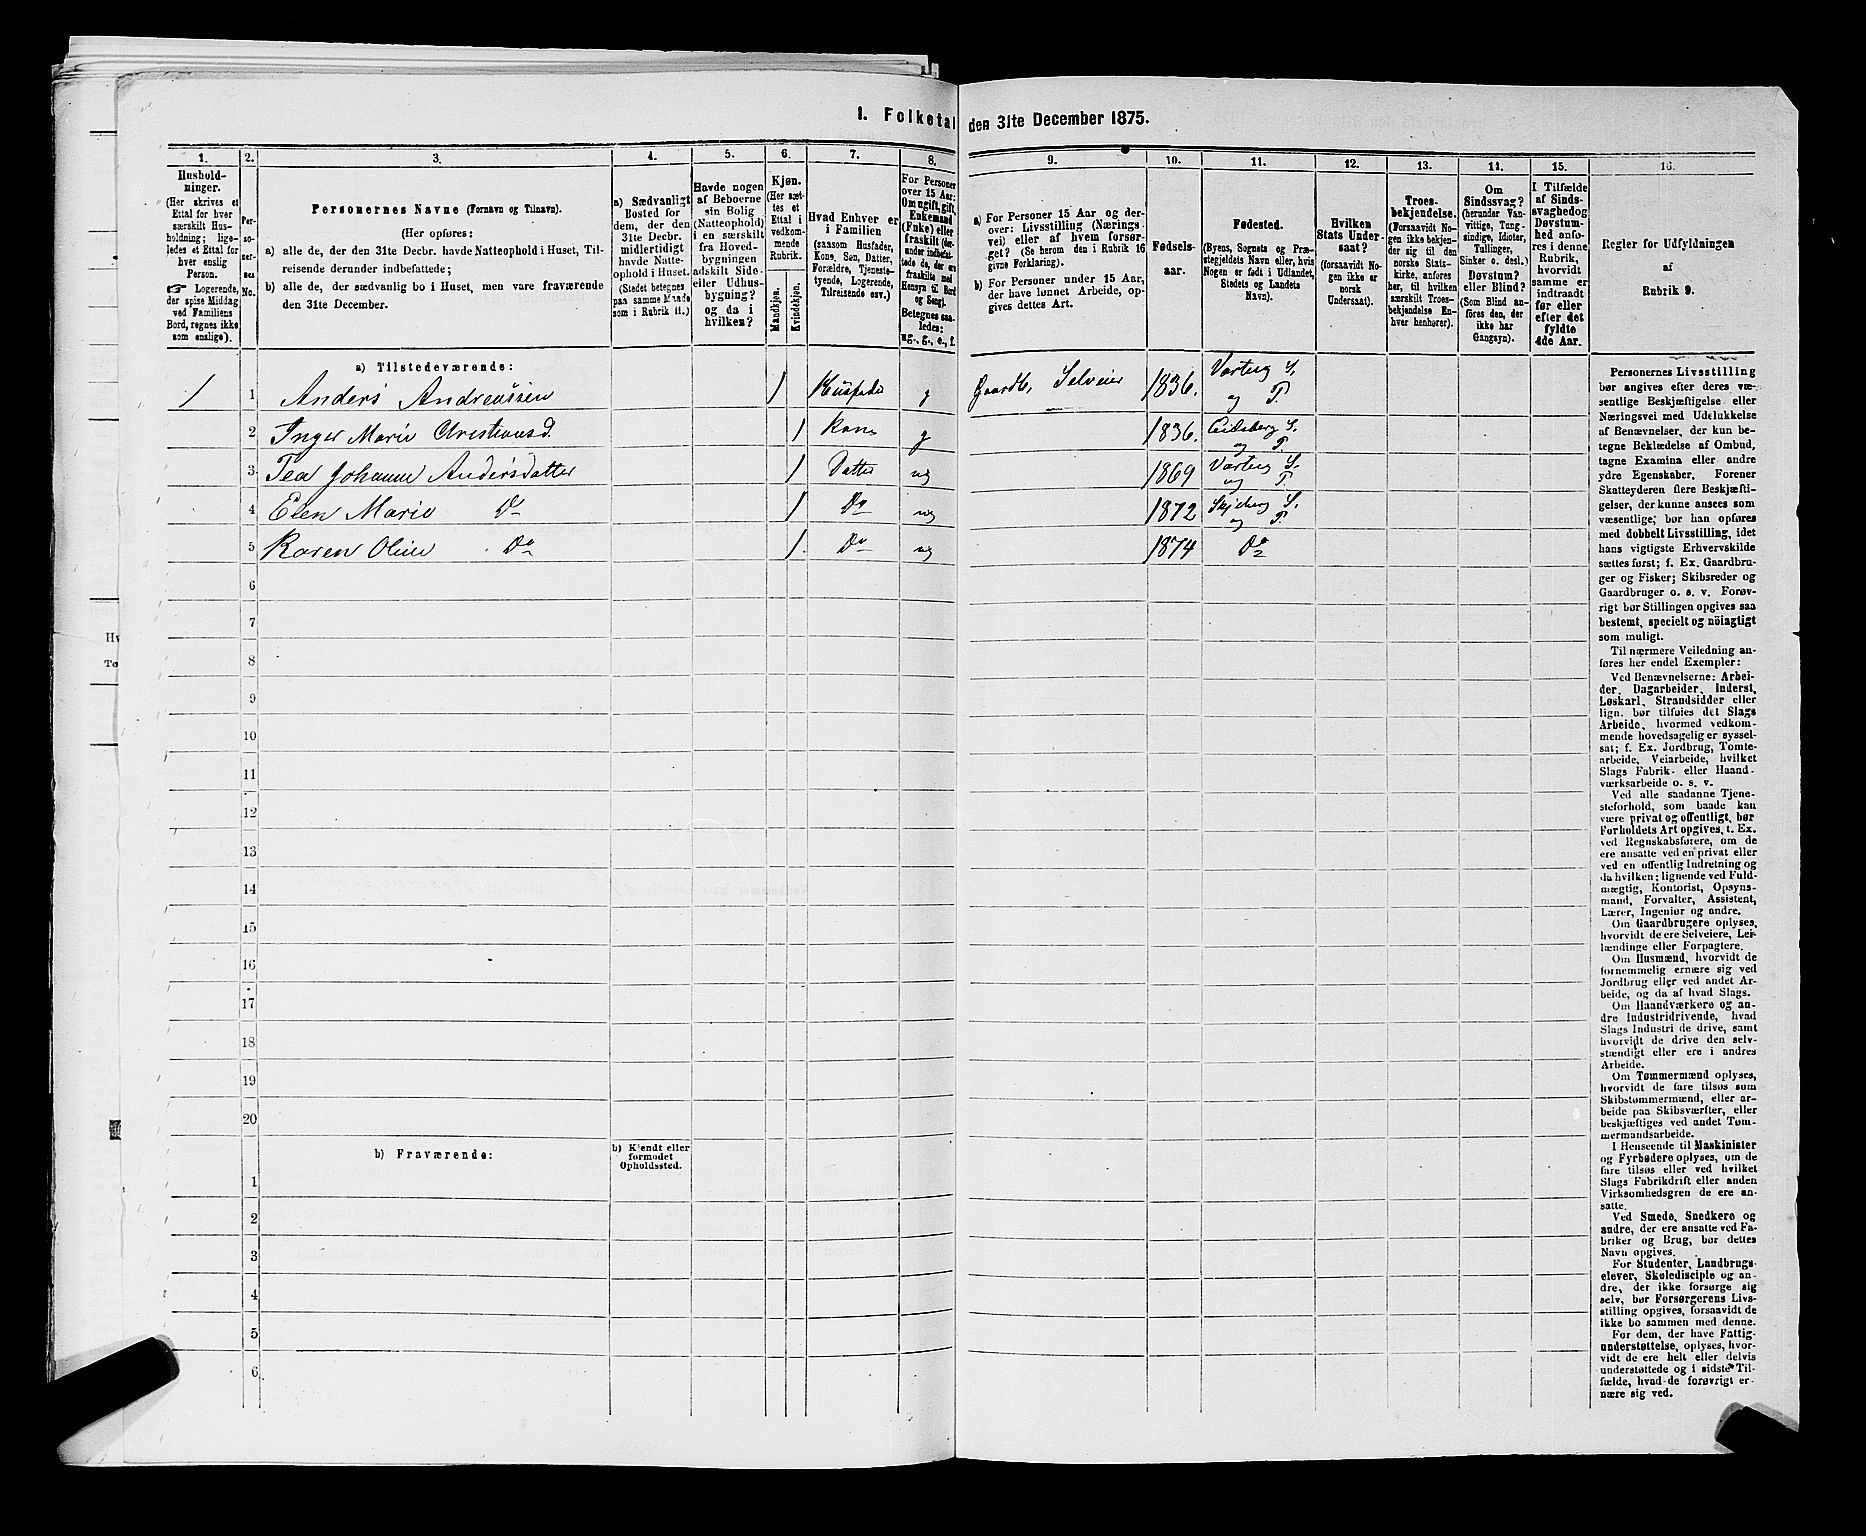 I. Folketal den 31te December 1875.
1. 2. 3. 4. 5. 6. 7. 8. 9. 10. 11. 12. 13. 14. 15. 16.
Hushold-
ninger.
(Her skrives et
Ettal for hver
særskilt Hus-
holdning; lige-
ledes et Ettal for
hver enslig
Person.
☞ Logerende,
der spise Middag
ved Familiens
Bord, regnes ikke
som enslige).
Per-
so-
ner-
nes
No.
Personernes Navne (Fornavn og Tilnavn).
(Her opføres:
a) alle de, der den 31te Decbr. havde Natteophold i Huset, Til-
reisende derunder indbefattede;
b) alle de, der sædvanlig bo i Huset, men vare fraværende
den 31te December.
a) Sædvanligt
Bosted for
dem, der den
31te Decbr.
midlertidigt
havde Natte-
ophold i Huset.
(Stedet betegnes
paa samme Maade
som i Rubrik 11.)
Havde nogen
af Beboerne
sin Bolig
(Natteophold)
i en særskilt
fra Hoved-
bygningen
adskilt Side-
eller Udhus-
bygning?
og da i
hvilken?
Kjøn.
(Her sæt-
tes et
Ettal i
vedkom-
mende
Rubrik.
Mandkjøn.
Kvindekjøn.
Hvad Enhver er
i Familien
(saasom Husfader,
Kone, Søn, Datter,
Forældre, Tjeneste-
tyende, Logerende,
Tilreisende osv.)
For Personer
over 15 Aar:
Om ugift, gift,
Enkemand
(Enke) eller
fraskilt (der-
under indbefat-
tede de, der ere
fraskilte med
Hensyn til Bord
og Seng).
Betegnes saa-
ledes:
ug., g., e., f.
a) For Personer 15 Aar og der-
over: Livsstilling (Nærings-
vei) eller af hvem forsør-
get? (Se herom den i Rubrik 16
givne Forklaring).
b) For Personer under 15 Aar,
der have lønnet Arbeide, op-
gives dettes Art.
Fødsels-
aar.
Fødested.
(Byens, Sognets og Præ-
stegjeldets Navn eller, hvis
Nogen er født i Udlandet,
Stedets og Landets
Navn).
Hvilken
Stats Under-
saat?
(forsaavidt No-
gen ikke er
norsk
Undersaat).
Troes-
bekjendelse.
(Forsaavidt No-
gen ikke bekjen-
der sig til den
norske Stats-
kirke, anføres
her, til hvilken
særskilt Troes-
bekjendelse En-
hver henhører).
Om
Sindssvag?
(herunder Van-
vittige, Tung-
sindige, Idioter,
Tullinger,
Sinker o. desl.)
Døvstum?
eller Blind?
(Som Blind an-
føres den, der
ikke har
Gangsyn).
I Tilfælde
af Sinds-
svaghed og
Døvstum-
hed anfø-
res i denne
Rubrik,
hvorvidt
samme er
indtraadt
før eller
efter det
fyldte
4de Aar.
Regler for Udfyldningen
af
Rubrik 9.
a) Tilstedeværende:
1 1 Anders Andreassen 1 Husfader g Gaardb, Selveier 1836. Varteig S. og P.
2 Inger Marie Christiansd. 1 Kone g 1836. Eidsberg S. og P.
3 Tea Johanne Andersdatter 1 Datter ug 1869 Varteig S. og P.
4 Elen Marie Do 1 Do ug 1872 Skjeberg S. og P.
5 Karen Oline Do 1 Do ug 1874 Do
6
7
8
9
10
11
12
13
14
15
16
17
18
19
20
b) Fraværende:
b) Kjendt eller
formodet
Opholdssted.
1
2
3
4
5
6
Personernes Livsstilling
bør angives efter deres væ-
sentlige Beskjæftigelse eller
Næringsvei med Udelukkelse
af Benævnelser, der kun be-
tegne Beklædelse af Ombud,
tagne Examina eller andre
ydre Egenskaber. Forener
Skatteyderen flere Beskjæfti-
gelser, der kunne ansees som
væsentlige, bør han opføres
med dobbelt Livsstilling, idet
hans vigtigste Erhvervskilde
sættes først; f. Ex. Gaardbru-
ger og Fisker; Skibsreder og
Gaardbruger o. s. v. Forøv-
rigt bør Stillingen opgives saa
bestemt, specielt og nöiagtigt
som muligt.
Til nærmere Veiledning an-
føres her endel Exempler:
Ved Benævnelserne: Arbei-
der, Dagarbeider, Inderst,
Løskarl, Strandsidder eller
lign. bør tilføies det Slags
Arbeide, hvormed vedkom-
mende hovedsagelig er syssel-
sat; f. Ex. Jordbrug, Tomte-
arbeide, Veiarbeide, hvilket
Slags Fabrik- eller Haand-
værksarbeide o. s. v.
Ved alle saadanne Tjene-
steforhold, som baade kan
være privat og offentligt, bør
Forholdets Art opgives, t. Ex.
ved Regnskabsførere, om de
ere ansatte ved en privat eller
ved en offentlig Indretning og
da hvilken; lignende ved Fuld-
mægtig, Kontorist, Opsyns-
mand, Forvalter, Assistent,
Lærer, Ingeniør og andre.
Om Gaardbrugere oplyses,
hvorvidt de ere Selveiere, Lei-
lændinge eller Forpagtere.
Om Husmænd, hvorvidt de
fornemmelig ernære sig ved
Jordbrug eller ved andet Ar-
beide, og da af hvad Slags.
Om Haandværkere og an-
dre Industridrivende, hvad
Slags Industri de drive, samt
hvorvidt de drive den selv-
stændigt eller ere i andres
Arbeide.
Om Tømmermænd oplyses,
hvorvidt de fare tilsøs som
Skibstømmermænd, eller ar-
beide paa Skibsværfter, eller
beskjæftiges ved andet Tøm-
mermandsarbeide.
I Henseende til Maskinister
og Fyrbødere oplyses, om de
fare tilsøs eller ved hvilket
Slags Fabrikdrift eller anden
Virksomhedsgren de ere an-
satte.
Ved Smede, Snedkere og
andre, der ere ansatte ved Fa-
briker og Brug, bør dettes
Navn opgives.
For Studenter, Landbrugs-
elever, Skoledisciple og an-
dre, der ikke forsørge sig
selv, bør Forsørgerens Livs-
stilling opgives, forsaavidt de
ikke bo sammen med denne.
For dem, der have Fattig-
understøttelse, oplyses, hvor-
vidt de ere helt eller delvis
understøttede og i sidste Til-
fælde, hvad de forøvrigt er-
nære sig ved.